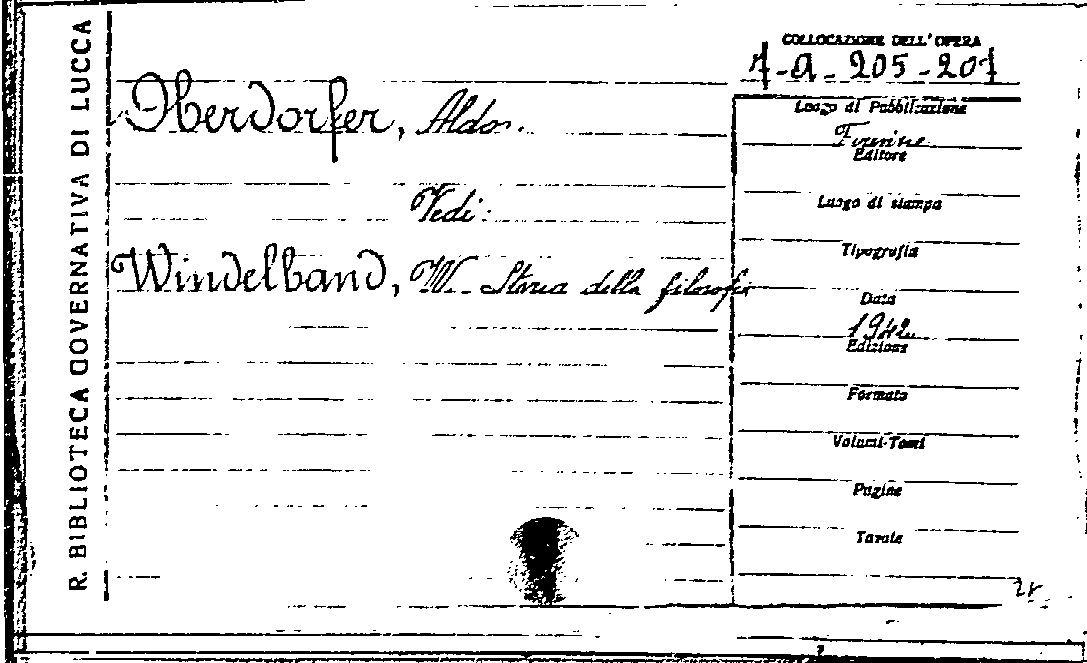 R. BIBLIOTECA GOVERNATIVA DI LUCCA
COLLOCAZIONE DELL'OPERA
Oberdorfer, Aldo.
Vedi:
Windelband, W. Storia della filosofia
Luogo di Pubblicazione
Firenze
Editore
Luogo di stampa
Tipografia
Data
1942
Edizione
Formato
Volumi-Tomi
Pagine
Tavole